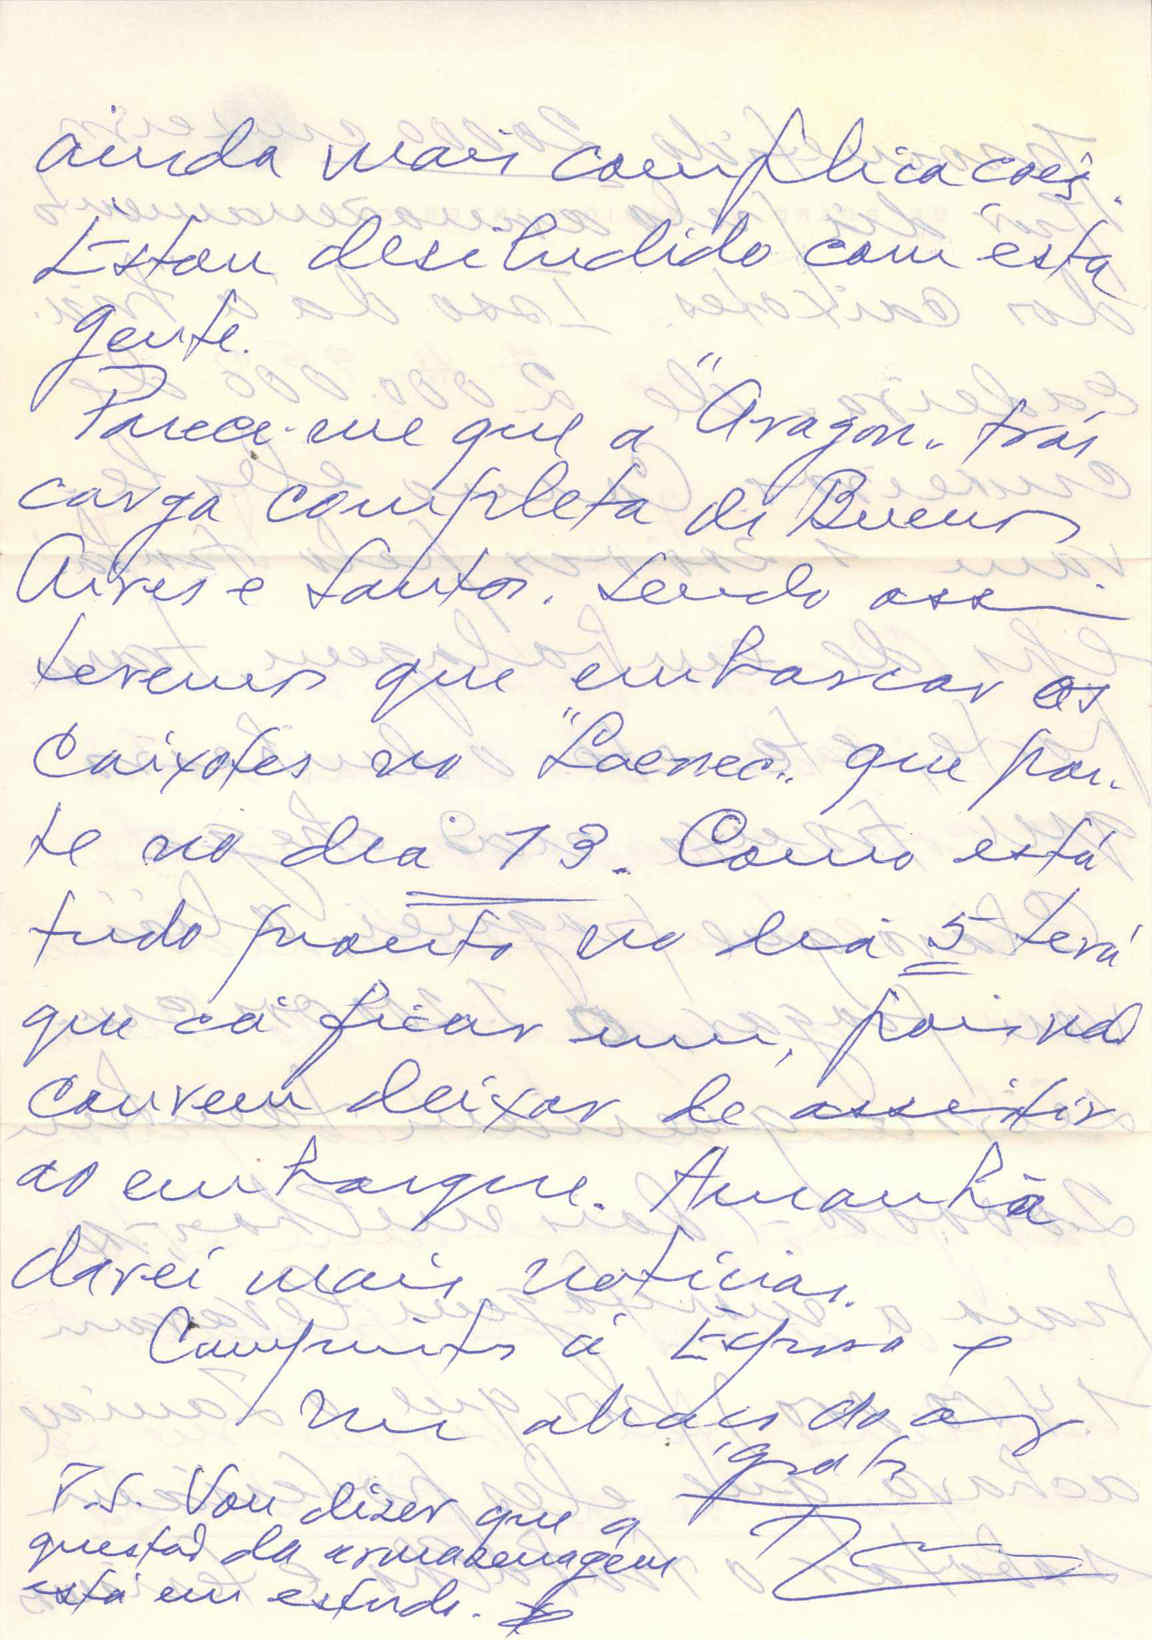 ainda mais complicacoẽs.
Estou desiludido com esta
gente.
Parece-me que a "Aragon" trás
carga completa de Buenos
Aires e Santos. Sendo assim
teremos que embarcar os
caixotes no "Laenec" que par-
te no dia 13. Como está
tudo pronto no dia 5 terá
que cá ficar um, pois não
convem deixar de assistir
ao embarque. Amanhã
darei mais noticias.
Cumpmtos á Esposa e
um abraço do amº
grato
P.S. Vou dizer que a
questão da armazenagem
está em estudo.